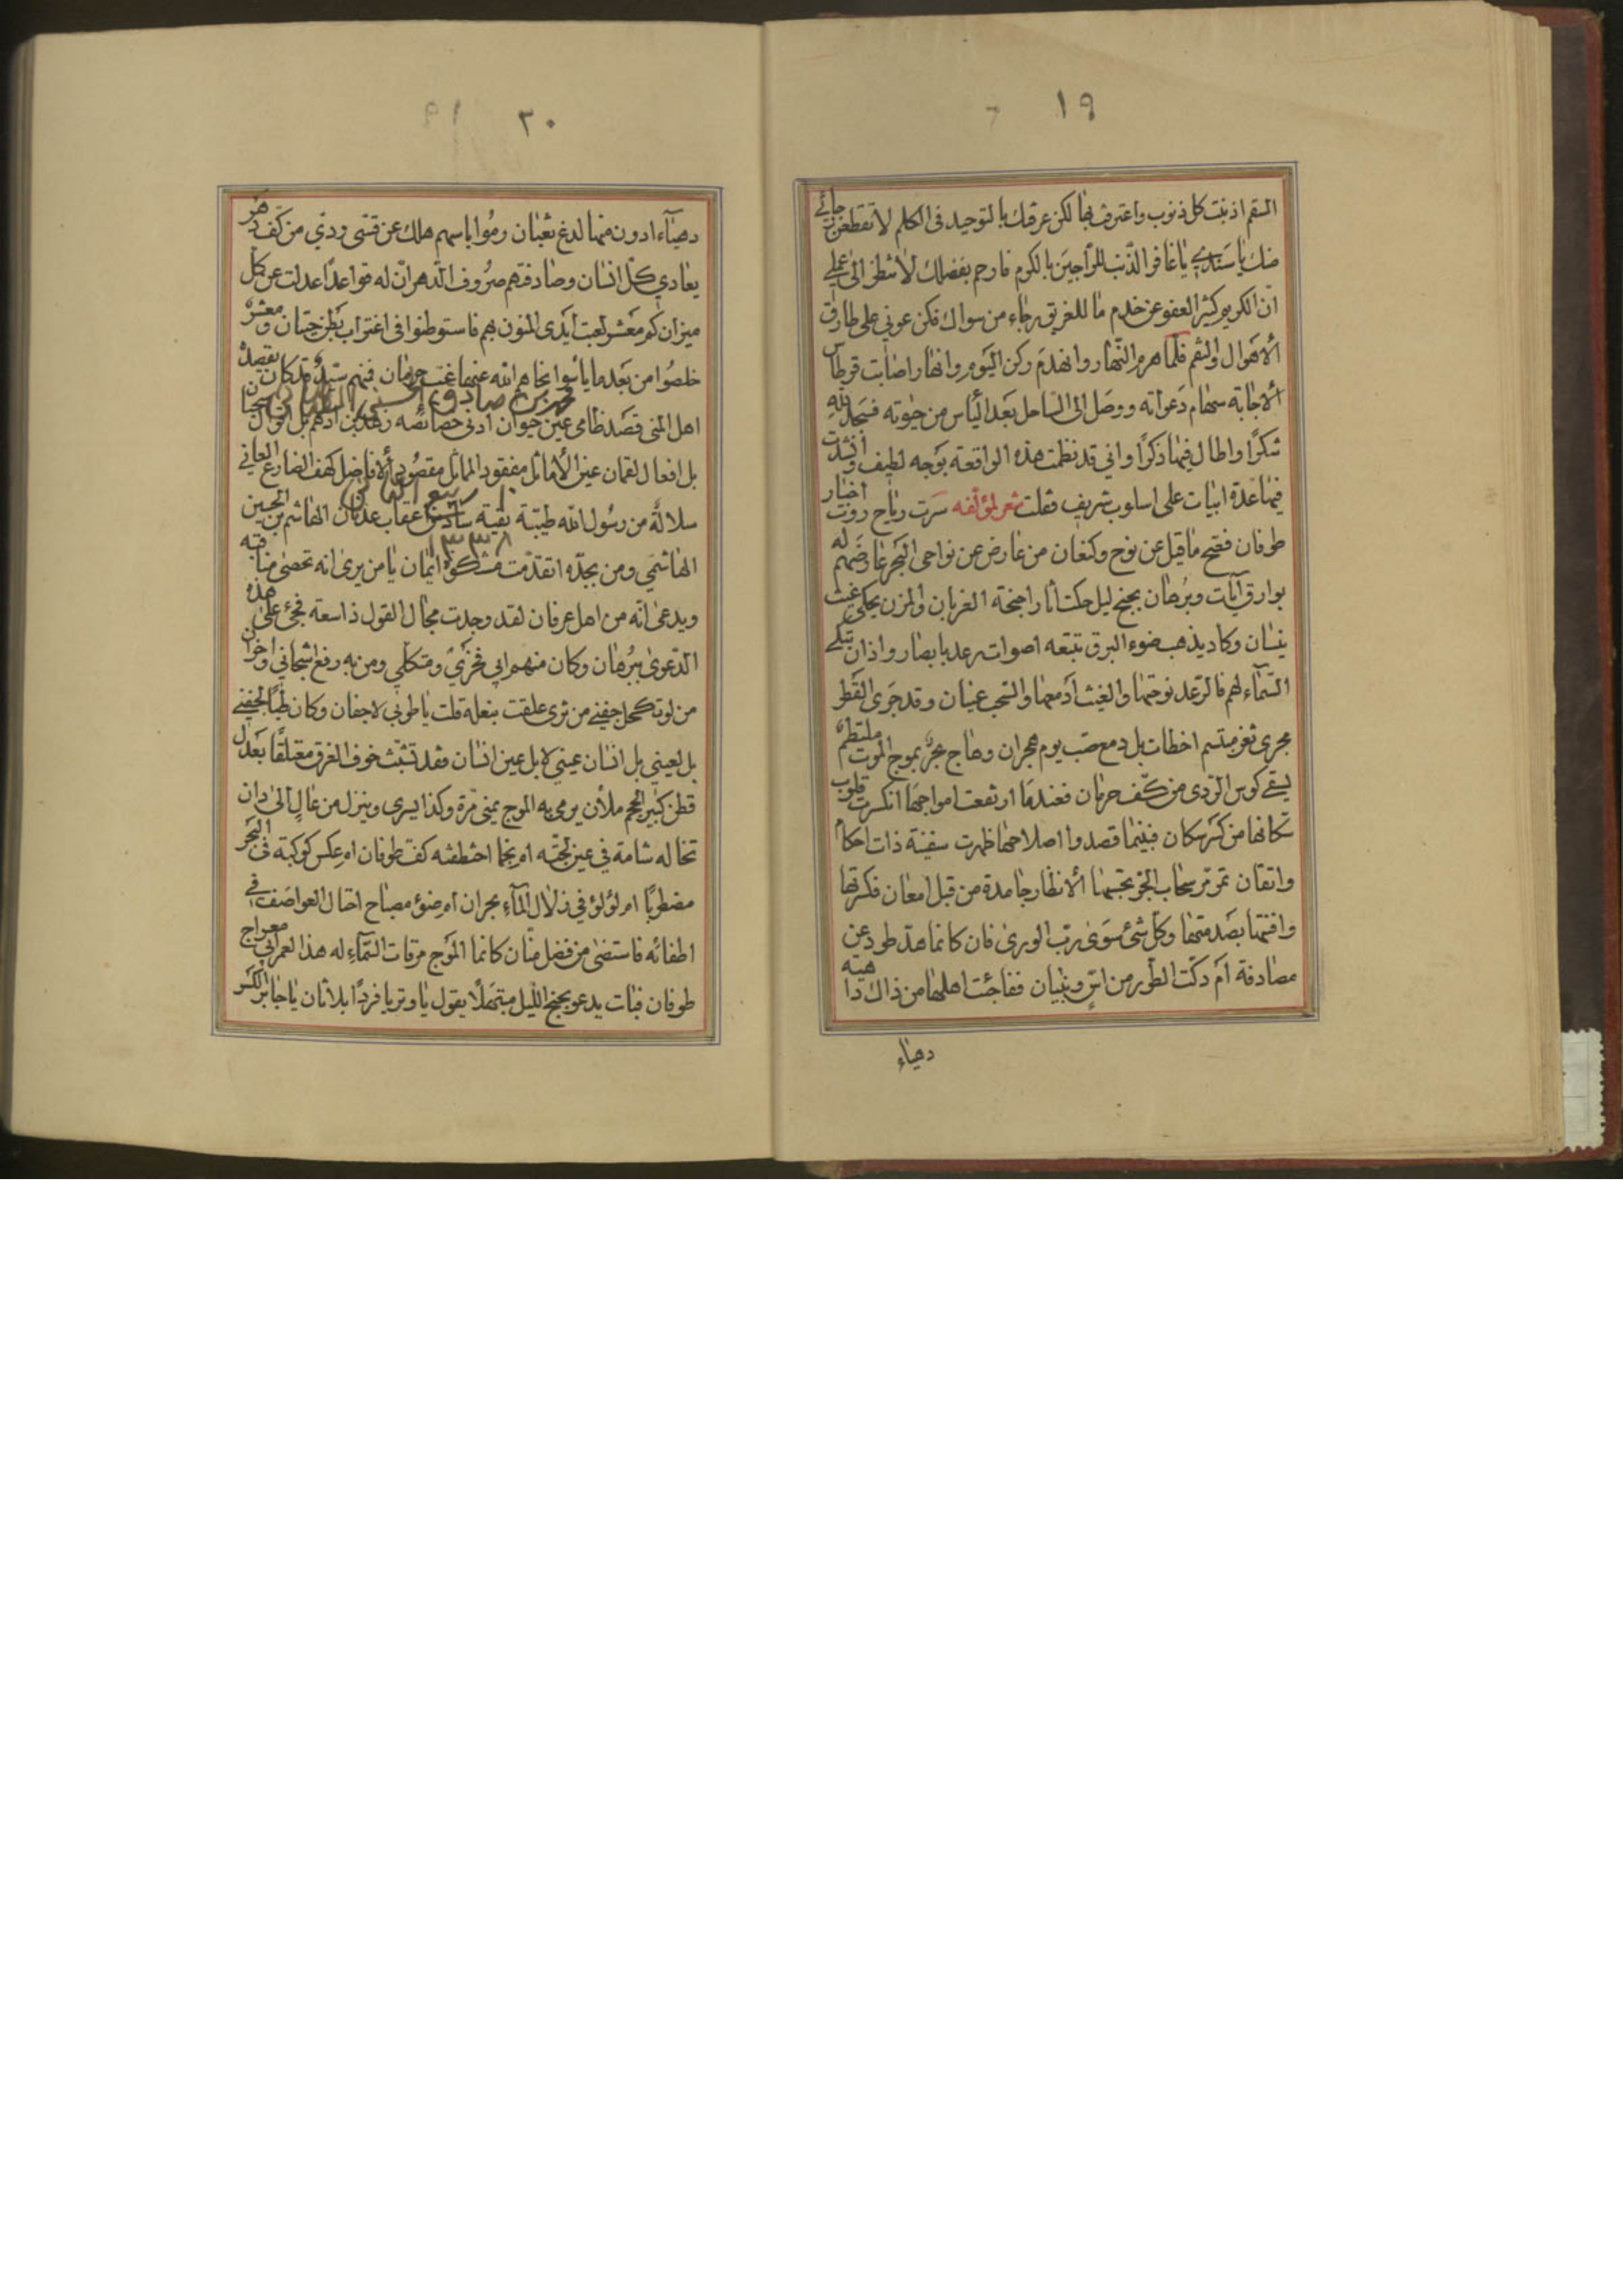 ١٩
السقم اذنبت كل ذنوب واعترف بها لكن عرفتك بالتوحيد فى الكلم لا تقطعن رجائي
منك يا سندي يا غافر الذنب للراجين بالكرم فارحم بفضلك لا تنظر الى عملي
ان الكريم كثير العفو عن خدم ما للغريق رجاء من سواك فكن عوني على طارق
الأهوال والنقم فلما هرم النهار وانهدم ركن اليوم وانهار اصابت قرطاس
الاجابة سهام دعواته ووصل الى الساحل بعد اليأس من حيوته فسجد لله
شكرًا واطال فيها ذكرًا واني قد نظمت هذه الواقعة بوجه لطيف وانشدت
فيها عدة ابيات على اسلوب شريف فقلت شعر لمؤلفه سرت رياح روت اخبار
طوفان فصح ما قيل عن نوح وكنعان من عارض عن نواحى البحر عارضهم له
بوارق آيات وبرهان بجنح ليل حكت اثار اجنحة الغربان والمزن يحكي غيث
نيسان وكاد يذهب ضوء البرق تتبعه اصوات رعد بابصار واذان تبكي
السماء لهم فالرعد نوحتها والغيث أدمعها والسحب عينان وقد جرى القطر
مجرى ثغر مبتسم اخطأت بل دمع صب يوم هجران وهاج بحر بموج الموت ملتطم
يسقي كوس الردى من كف حرمان فعندما ارتفعت امواجها انكسرت قلوب
سكانها من كسر سكان فبينما قصدوا اصلاحها ظهرت سفينة ذات احكام
واتقان تمر مر سحاب الجو تحسبها الانظار جامدة من قبل امعان فكسرتها
وافنتها بصدمتها وكل شئ سوى رب الورى فان كانما هد طود عن
مصادفة أم دكت الطور من اس وبنيان ففاجئت اهلها من ذاك داهية
دهياء
٢٠
دهياء ادون منها لدغ ثعبان ورموا باسهم هلك عن قسى ردى من كف دهر
يعادي كل انسان وصادفتهم صروف الدهر ان له قواعدًا عدلت عن كل
ميزان كم معشر لعبت ايدى المنون بهم فاستوطنوا فى اغتراب بطن حيتان ومعشر
خلصوا من بعد ما يأسوا نجاهم الله عنها غب حرمان فمنهم سيد قد كان يقصده
اهل المنى قصد ظامى عين حيوان ادنى خصائصه زهد بن ادهم بل اقوال سحبان
بل افعال لقمان عين الأماثل مفقود المماثل مقصود الافاضل كهف الضارع العاني
سلالة من رسول الله طيبة بقية من اعقاب عدنان الهاشم بن الحسين
الهاشمي ومن بجده اتقدت مشكوة ايمان يا من يرى انه تحصى مناقبه
ويدعى انه من اهل عرفان لقد وجدت مجال القول ذا سعة فجئ على هذه
الدعوى ببرهان وكان منهم ابي فخري ومتكلي ومن به رفع اشجاني واحزان
من لو تكحل اجفني من ثرى علقت بنعله قلت يا طوبى لاجفان وكان طبا لجفني
بل لعيني بل انسان عيني لا بل عين انسان فقد تشبث خوف الغرق معتلقا بعدل
قطن كبير الحجم ملأن يرمي به الموج يمنى مرة وكذا يسرى وينزل من عال الى دان
تخاله شامة في عين لجته ام نجما اختطفته كف طوفان ام عكس كوكبة فى البحر
مضطربًا ام لؤلؤ في زلال الماء بحران ام ضوء مصباح احتال العواصف في
اطفائه فاستضى من فضل منان كانما الموج مرقات السماء له هذا لعمرابي معراج
طوفان فبات يدعو بجنح الليل مبتهلا يقول يا وتر يا فردًا بلا ثان يا جابر الكسر